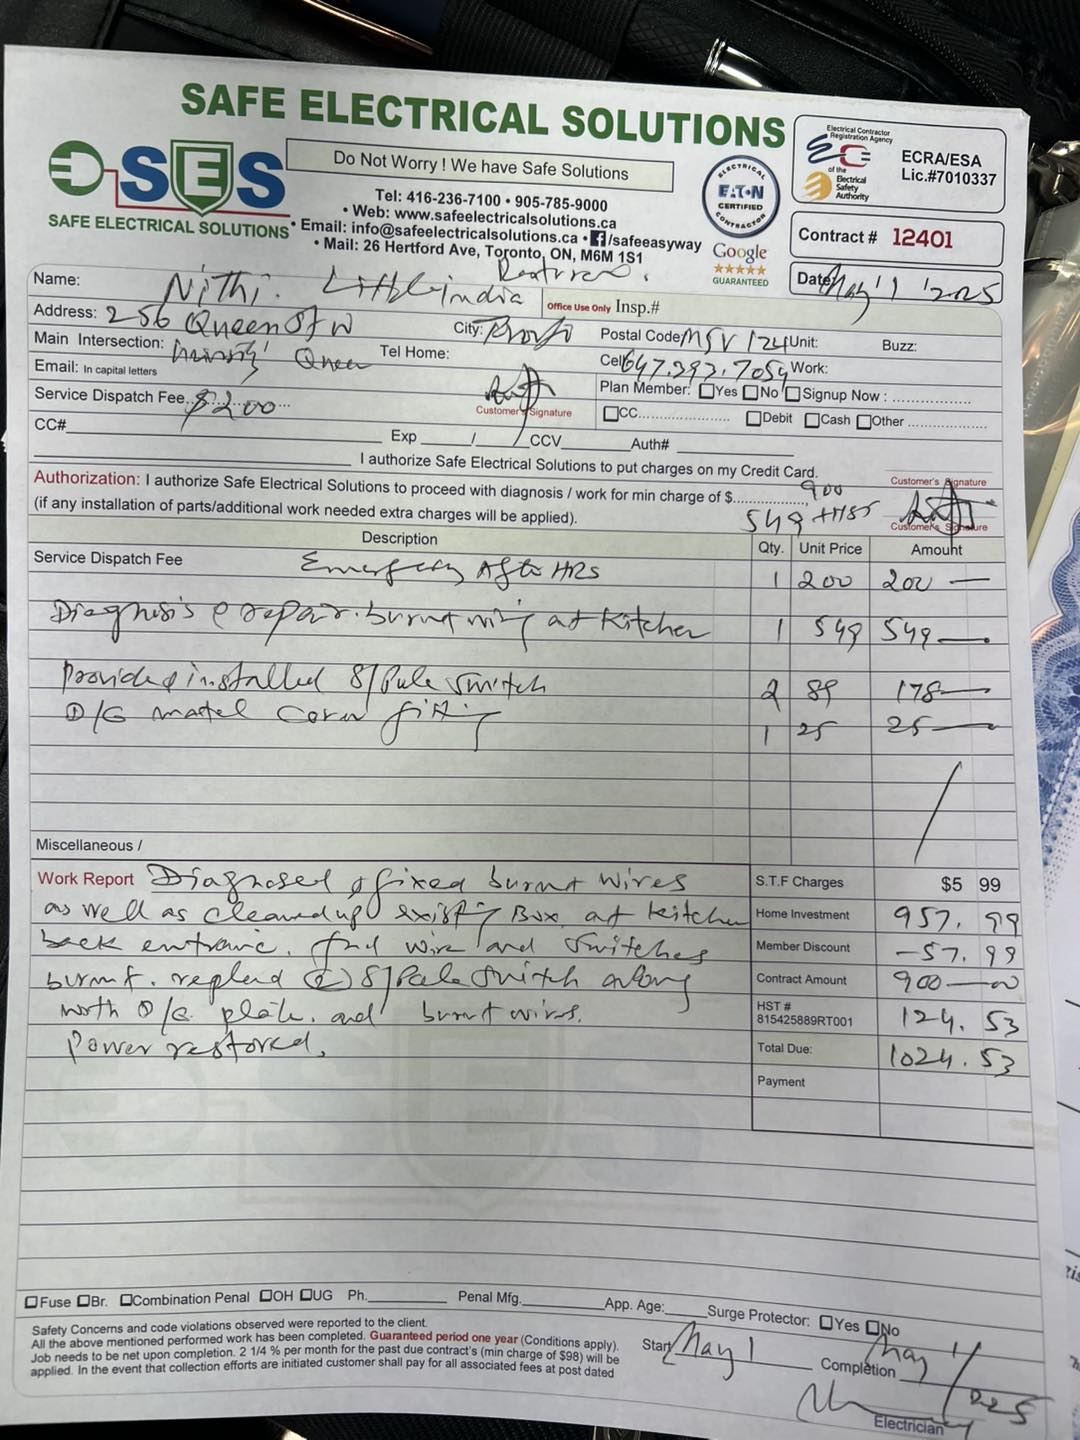 SAFE ELECTRICAL SOLUTIONS
SES
SAFE ELECTRICAL SOLUTIONS
Do Not Worry ! We have Safe Solutions
Tel: 416-236-7100 • 905-785-9000
• Web: www.safeelectricalsolutions.ca
• Email: info@safeelectricalsolutions.ca • f/safeeasyway
• Mail: 26 Hertford Ave, Toronto, ON, M6M 1S1
ELECTRICAL
EATON
CERTIFIED
CONTRACTOR
Google
GUARANTEED
Electrical Contractor
Registration Agency
of the
Electrical
Safety
Authority
ECRA/ESA
Lic.#7010337
Contract # 12401
Date May 1 2025
Name: Nithi. Little india
Office Use Only Insp.#
Address: 256 Queen St W City: Toronto Postal Code M5V 1Z4 Unit: Buzz:
Main Intersection: Queen Tel Home: Cell 647.393.7054 Work:
Email: In capital letters
Plan Member: Yes No Signup Now :
Service Dispatch Fee $200 Customer's Signature
CC Debit Cash Other
CC# Exp / / CCV Auth#
I authorize Safe Electrical Solutions to put charges on my Credit Card. Customer's Signature
Authorization: I authorize Safe Electrical Solutions to proceed with diagnosis / work for min charge of $ 900
(if any installation of parts/additional work needed extra charges will be applied). 549 + HST Customer's Signature
Description Qty. Unit Price Amount
Service Dispatch Fee Emergency After HRS 1 200 200 —
Diagnosis & repair burnt wiring at Kitchen 1 549 549 —
Provided installed S/Pole Switch 2 89 178 —
O/G matel Cover fitting 1 25 25 —
Miscellaneous /
Work Report Diagnosed & fixed burnt wires
as well as cleaned up existing Box at Kitchen
back entrance. find wire and Switches
burnt. replaced (2) S/Pole Switch along
with O/G plate. and burnt wires.
Power restored.
S.T.F Charges $5 99
Home Investment 957.99
Member Discount -57.99
Contract Amount 900—00
HST #
815425889RT001 124.53
Total Due: 1024.53
Payment
Fuse Br. Combination Penal OH UG Ph. Penal Mfg. App. Age: Surge Protector: Yes No
Safety Concerns and code violations observed were reported to the client.
All the above mentioned performed work has been completed. Guaranteed period one year (Conditions apply).
Job needs to be net upon completion. 2 1/4 % per month for the past due contract's (min charge of $98) will be
applied. In the event that collection efforts are initiated customer shall pay for all associated fees at post dated
Start May 1
Completion May 1/2025
Electrician